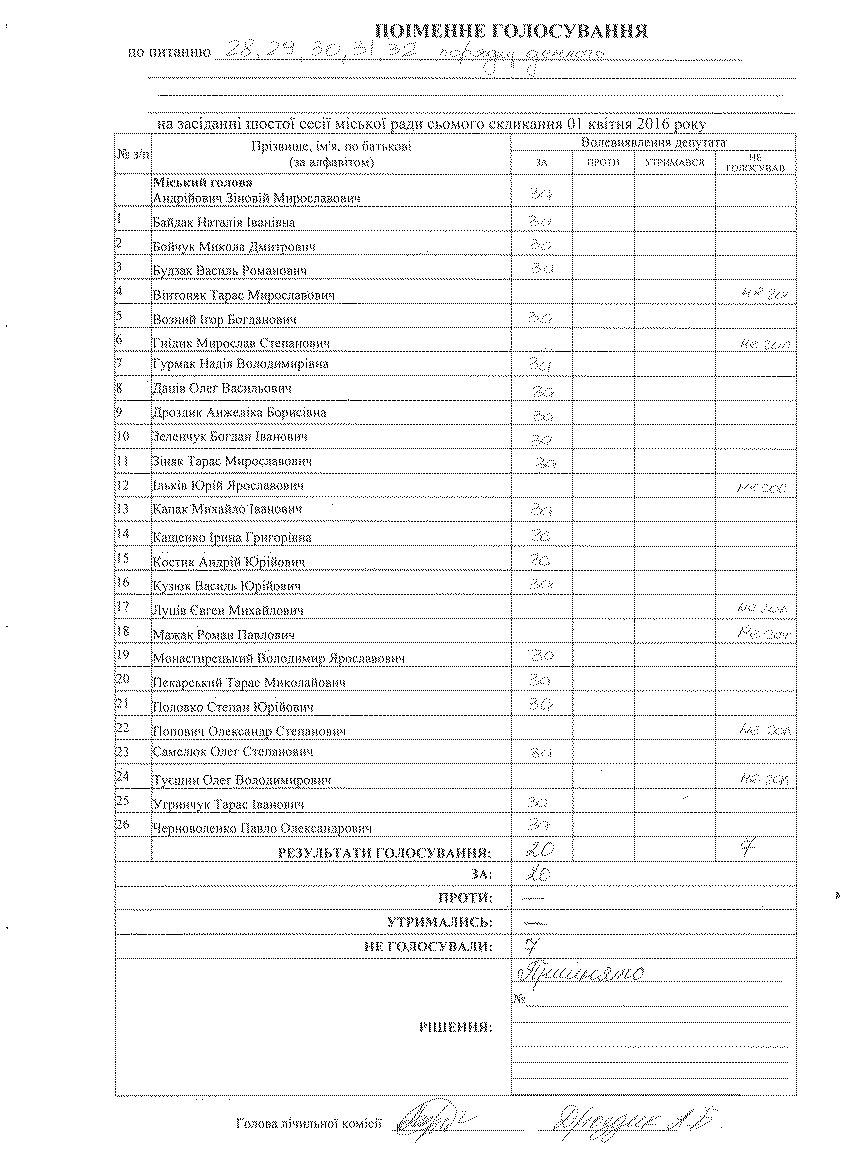 ПОІМЕННЕ ГОЛОСУВАННЯ
по питанню 28, 29, 30, 31, 32 порядку денного
на засіданні шостої сесії міської ради сьомого скликання 01 квітня 2016 року
№ з/п Прізвище, ім'я, по батькові (за алфавітом) Волевиявлення депутата
ЗА ПРОТИ УТРИМАВСЯ НЕ ГОЛОСУВАВ
Міський голова
Андрійович Зіновій Мирославович за
1 Байдак Наталія Іванівна за
2 Бойчук Микола Дмитрович за
3 Будзак Василь Романович за
4 Вінтоняк Тарас Мирославович не гол
5 Возний Ігор Богданович за
6 Гнідик Мирослав Степанович не гол
7 Гурмак Надія Володимирівна за
8 Даців Олег Васильович за
9 Дроздик Анжеліка Борисівна за
10 Зеленчук Богдан Іванович за
11 Зіняк Тарас Мирославович за
12 Ільків Юрій Ярославович не гол
13 Капак Михайло Іванович за
14 Кащенко Ірина Григорівна за
15 Костик Андрій Юрійович за
16 Кузюк Василь Юрійович за
17 Луців Євген Михайлович не гол
18 Мажак Роман Павлович не гол
19 Монастирецький Володимир Ярославович за
20 Пекарський Тарас Миколайович за
21 Половко Степан Юрійович за
22 Попович Олександр Степанович не гол
23 Самелюк Олег Степанович за
24 Туєшин Олег Володимирович не гол
25 Угринчук Тарас Іванович за
26 Черноволенко Павло Олександрович за
РЕЗУЛЬТАТИ ГОЛОСУВАННЯ: 20 7
ЗА: 20
ПРОТИ: —
УТРИМАЛИСЬ: —
НЕ ГОЛОСУВАЛИ: 7
РІШЕННЯ: Прийнято
№
Голова лічильної комісії Дроздик А.Б.